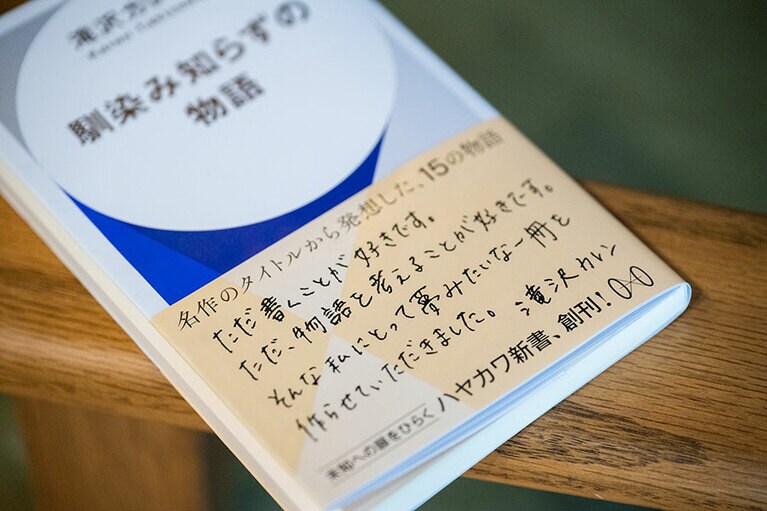 滝沢カレン
馴染み知らずの
物語
名作のタイトルから発想した、15の物語
ただ書くことが好きです。
ただ、物語を考えることが好きです。
そんな私にとって夢みたいな一冊を
作らせていただきました。 滝沢カレン
未知への扉をひらく ハヤカワ新書、創刊!